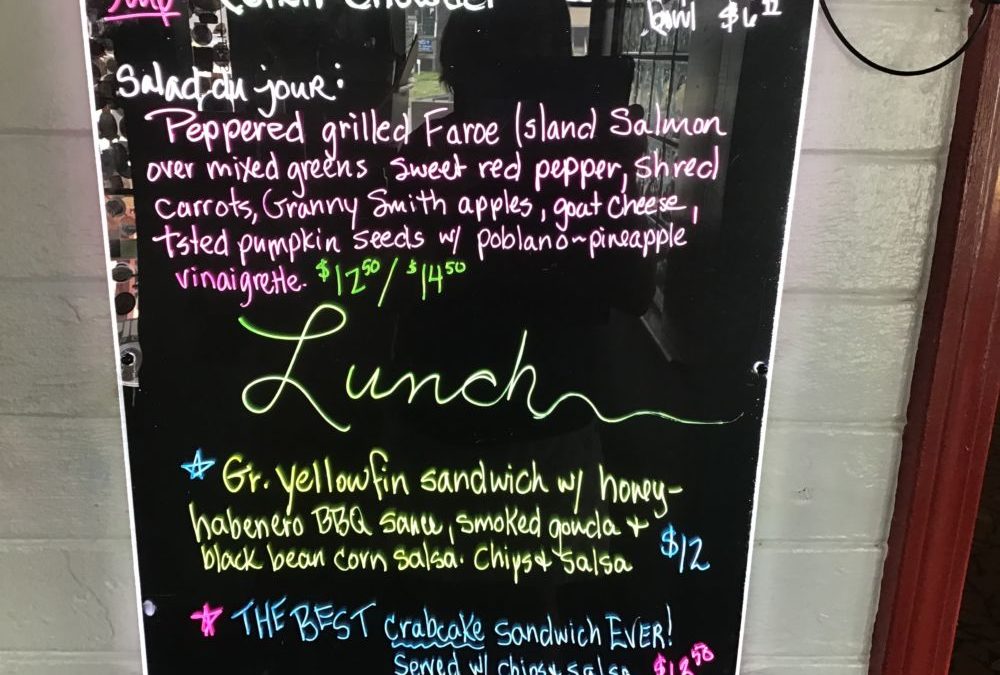 Soup Chowder Bowl $6
Salad du jour:
Peppered grilled Faroe Island Salmon
over mixed greens sweet red pepper, shred
carrots, Granny Smith apples, goat cheese,
tsted pumpkin seeds w/ poblano~pineapple
vinaigrette. $12.50 / $14.50
Lunch
Gr. yellowfin sandwich w/ honey-
habenero BBQ sauce, smoked gouda +
black bean corn salsa. Chips + salsa $12
THE BEST crabcake sandwich EVER!
Served w/ chips + salsa